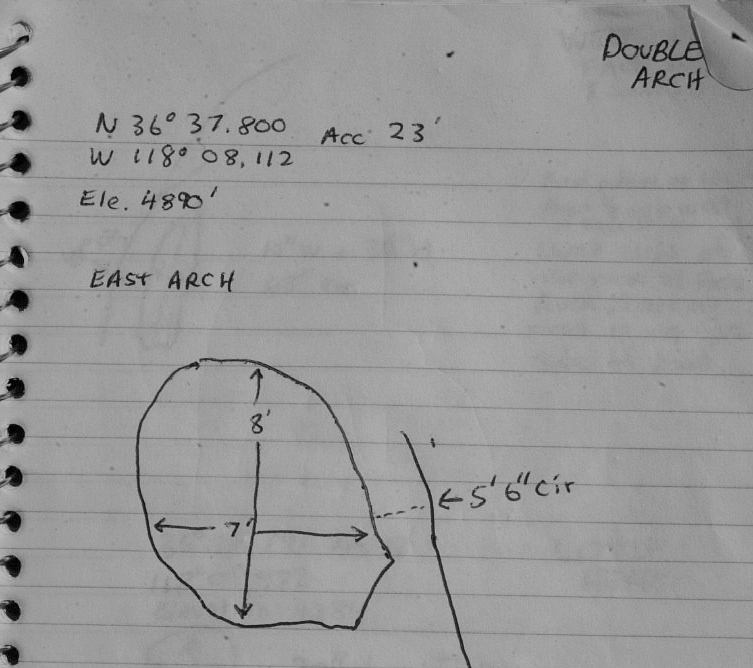 DOUBLE
ARCH
N 36° 37.800 Acc 23'
W 118° 08,112
Ele. 4890'
EAST ARCH
8'
7'
5' 6" Cir